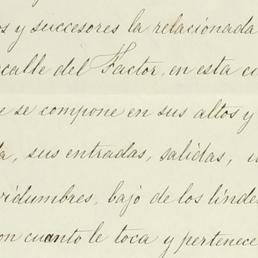 os y succesores la relacionada
calle del Factor, en esta c
e se compone en sus altos y
a, sus entradas, salidas, u
vidumbres, bajo de los linde
on cuanto le toca y pertenece